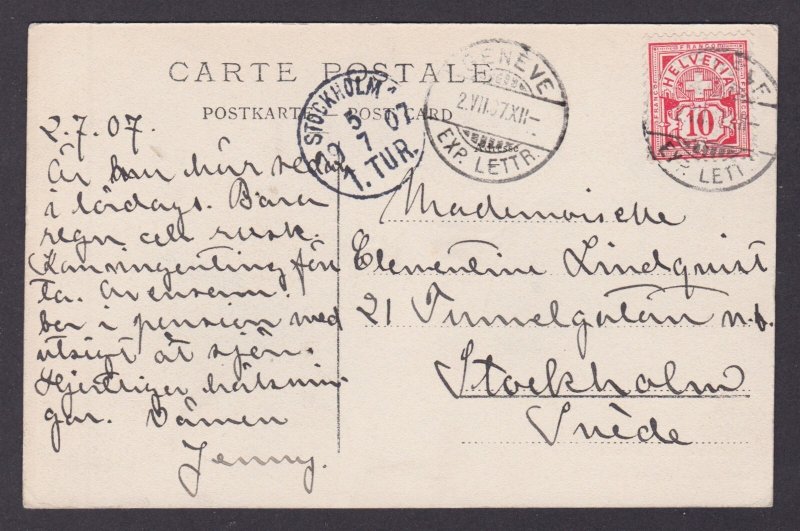 CARTE POSTALE
POSTKARTE POST CARD
STOCKHOLM 1
5
7 07
1. TUR.
GENÈVE
2.VII.07.XII-
EXP. LETTR.
FRANCO
HELVETIA
10
EXP. LETT
2.7.07.
Är här
i lördags. Bara
regn och rusk.
Kan ingenting före
ta.
bor i pension med
utsigt åt sjön.
Hjertliga hälsnin-
gar.
Jenny.
Mademoiselle
Clementine Lindquist
21 Tunnelgatan n.b.
Stockholm
Suède